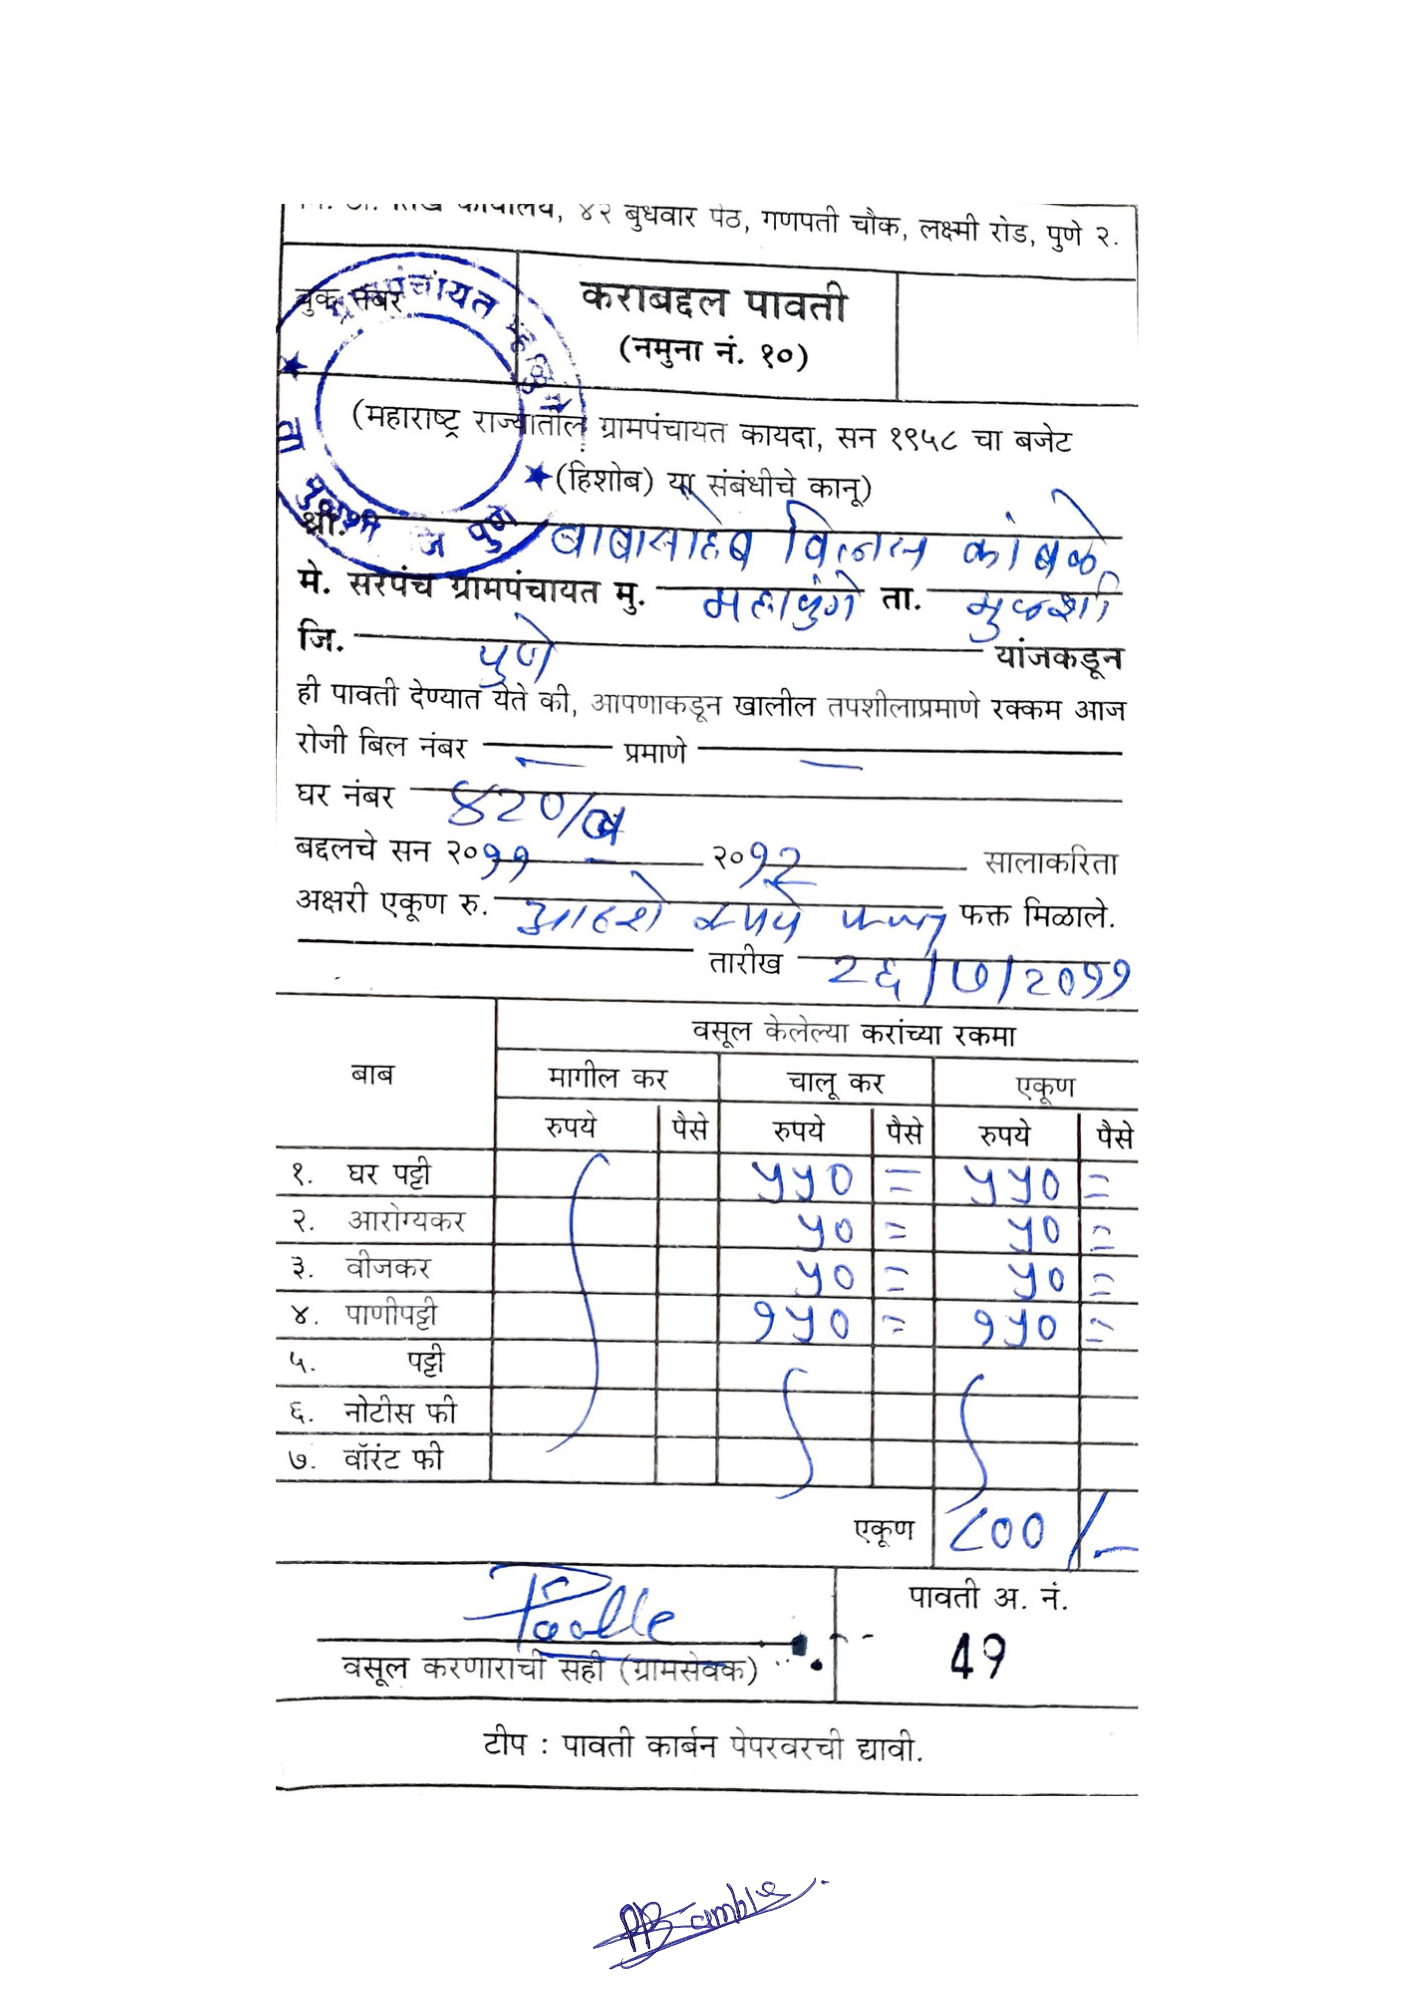 कार्यालय, ४२ बुधवार पेठ, गणपती चौक, लक्ष्मी रोड, पुणे २.
बुक नंबर
कराबद्दल पावती
(नमुना नं. १०)
(महाराष्ट्र राज्यातील ग्रामपंचायत कायदा, सन १९५८ चा बजेट
(हिशोब) या संबंधीचे कानू)
श्री. बाबासाहेब विलास कांबळे
मे. सरपंच ग्रामपंचायत मु. महाळुंगे ता. मुळशी
जि. पुणे यांजकडून
ही पावती देण्यात येते की, आपणाकडून खालील तपशीलाप्रमाणे रक्कम आज
रोजी बिल नंबर — प्रमाणे —
घर नंबर ४२०/ब
बद्दलचे सन २०११ - २०१२ सालाकरिता
अक्षरी एकूण रु. आठशे रुपये फक्त फक्त मिळाले.
तारीख २६/७/२०११
वसूल केलेल्या करांच्या रकमा
बाब मागील कर चालू कर एकूण
रुपये पैसे रुपये पैसे रुपये पैसे
१. घर पट्टी ५५० = ५५० =
२. आरोग्यकर ५० = ५० =
३. वीजकर ५० = ५० =
४. पाणीपट्टी १५० = १५० =
५. पट्टी
६. नोटीस फी
७. वॉरंट फी
एकूण ८००/-
पावती अ. नं.
49
वसूल करणाराची सही (ग्रामसेवक)
टीप : पावती कार्बन पेपरवरची द्यावी.